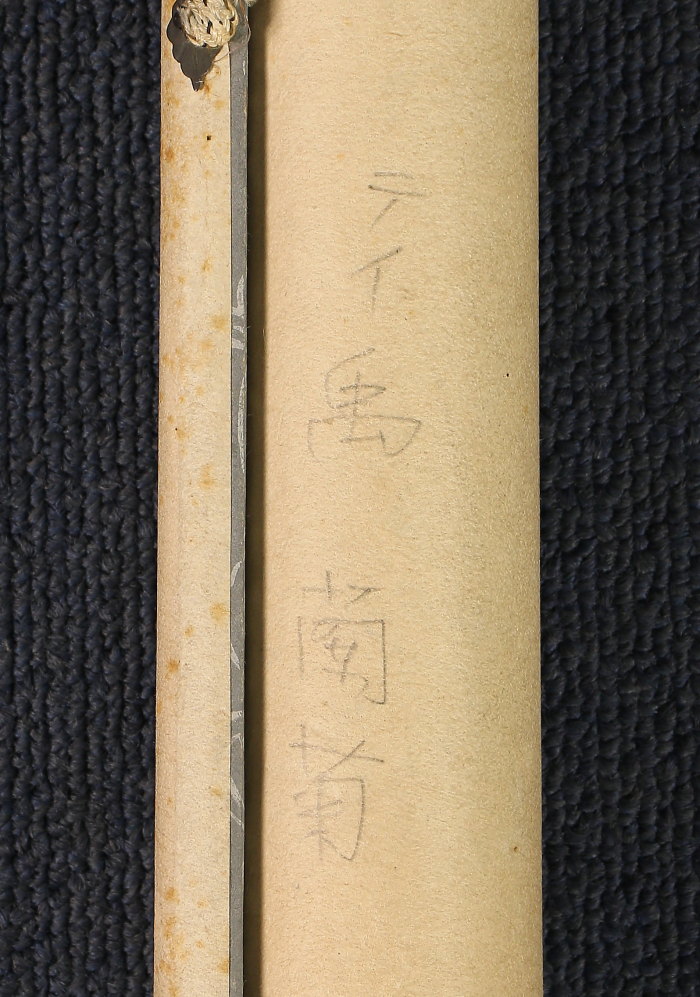 テイ禹 蘭菊